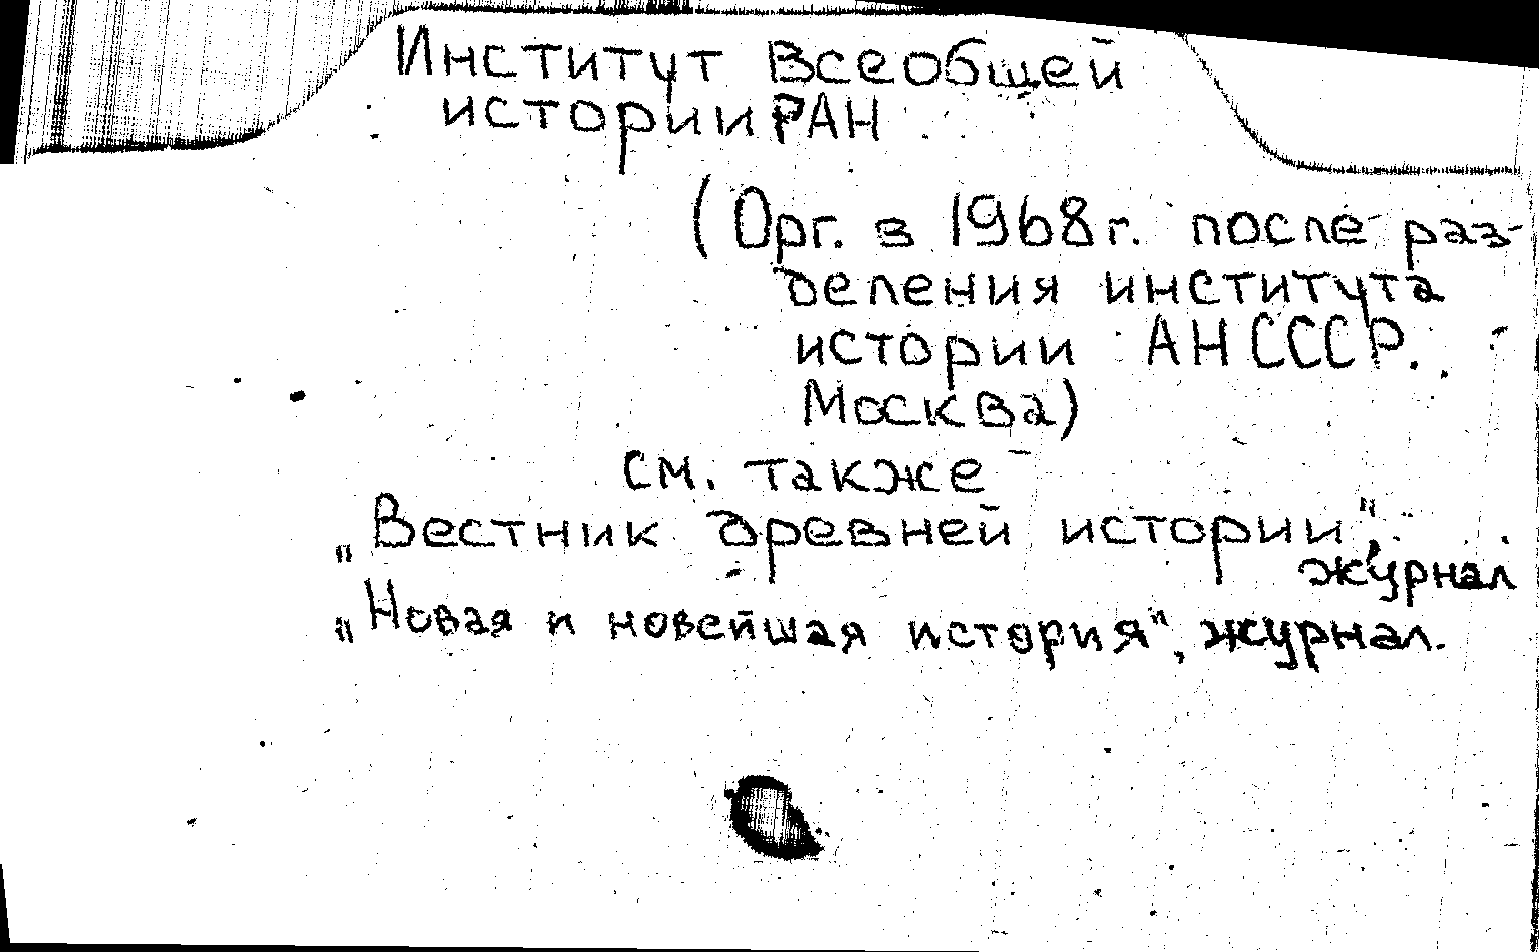 Институт Всеобщей
истории РАН
(Орг. в 1968 г. после раз-
деления института
истории АН СССР.
Москва)
см. также
„Вестник древней истории",
журнал
„Новая и новейшая история", журнал.